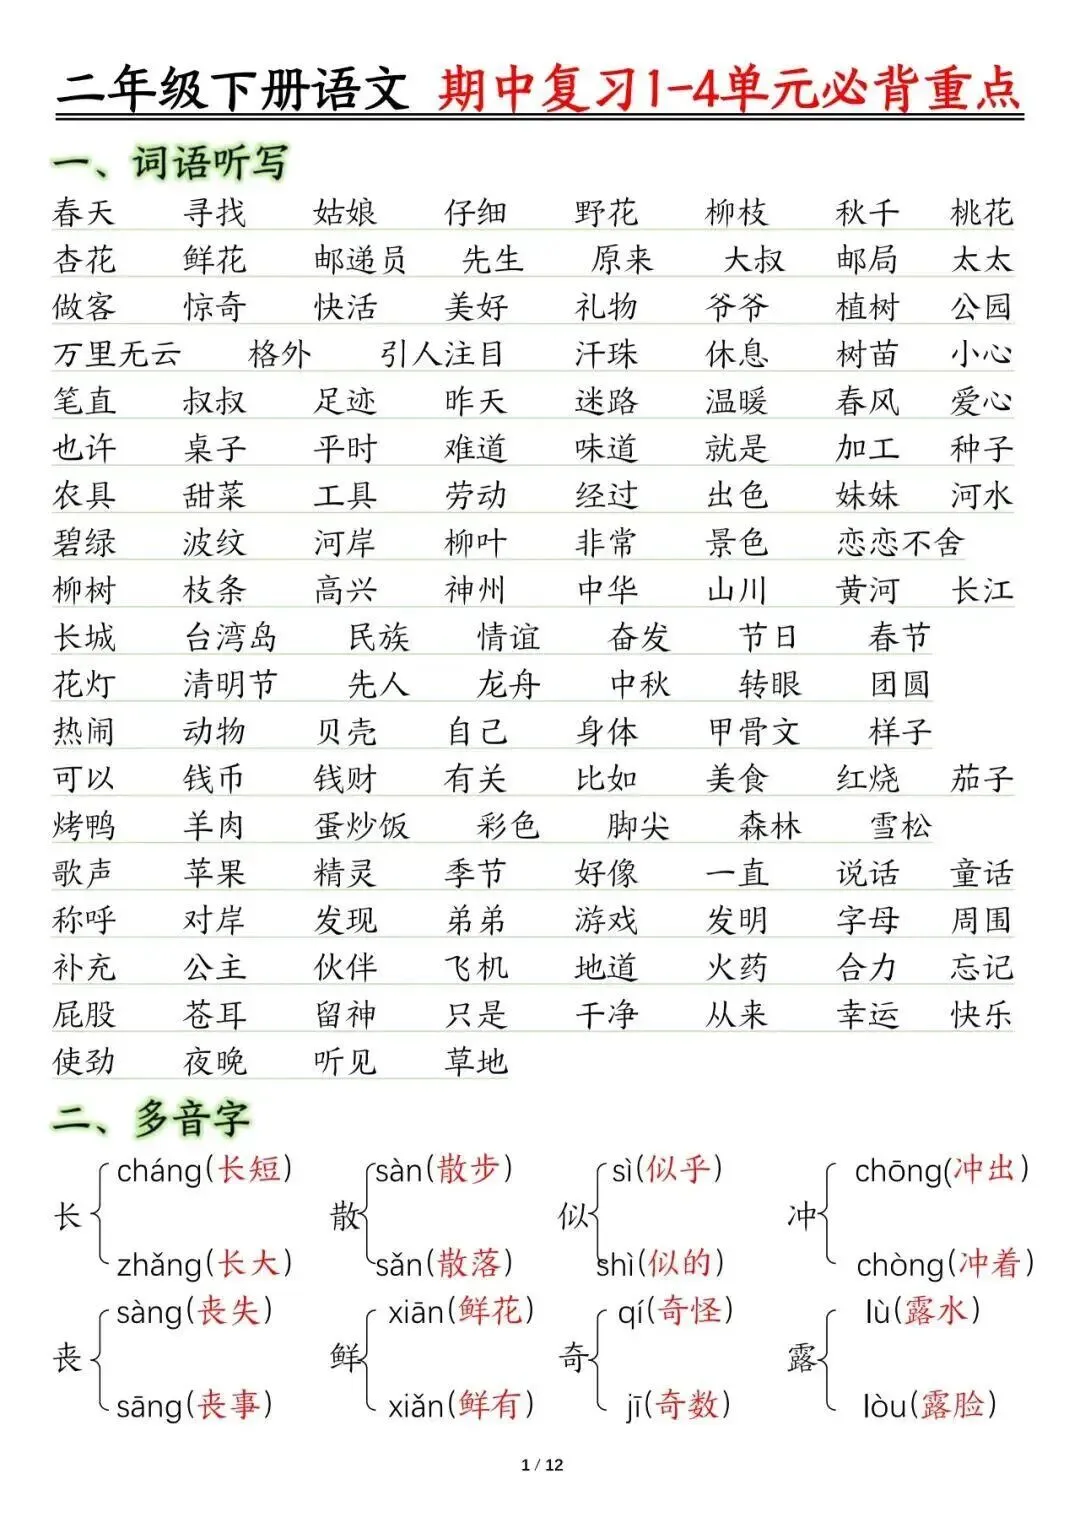 二年级下册语文 期中复习1-4单元必背重点
一、词语听写
春天 寻找 姑娘 仔细 野花 柳枝 秋千 桃花
杏花 鲜花 邮递员 先生 原来 大叔 邮局 太太
做客 惊奇 快活 美好 礼物 爷爷 植树 公园
万里无云 格外 引人注目 汗珠 休息 树苗 小心
笔直 叔叔 足迹 昨天 迷路 温暖 春风 爱心
也许 桌子 平时 难道 味道 就是 加工 种子
农具 甜菜 工具 劳动 经过 出色 妹妹 河水
碧绿 波纹 河岸 柳叶 非常 景色 恋恋不舍
柳树 枝条 高兴 神州 中华 山川 黄河 长江
长城 台湾岛 民族 情谊 奋发 节日 春节
花灯 清明节 先人 龙舟 中秋 转眼 团圆
热闹 动物 贝壳 自己 身体 甲骨文 样子
可以 钱币 钱财 有关 比如 美食 红烧 茄子
烤鸭 羊肉 蛋炒饭 彩色 脚尖 森林 雪松
歌声 苹果 精灵 季节 好像 一直 说话 童话
称呼 对岸 发现 弟弟 游戏 发明 字母 周围
补充 公主 伙伴 飞机 地道 火药 合力 忘记
屁股 苍耳 留神 只是 干净 从来 幸运 快乐
使劲 夜晚 听见 草地
二、多音字
cháng(长短) sàn(散步) sì(似乎) chōng(冲出)
长 散 似 冲
zhǎng(长大) sǎn(散落) shì(似的) chòng(冲着)
sàng(丧失) xiān(鲜花) qí(奇怪) lù(露水)
丧 鲜 奇 露
sāng(丧事) xiǎn(鲜有) jī(奇数) lòu(露脸)
1 / 12